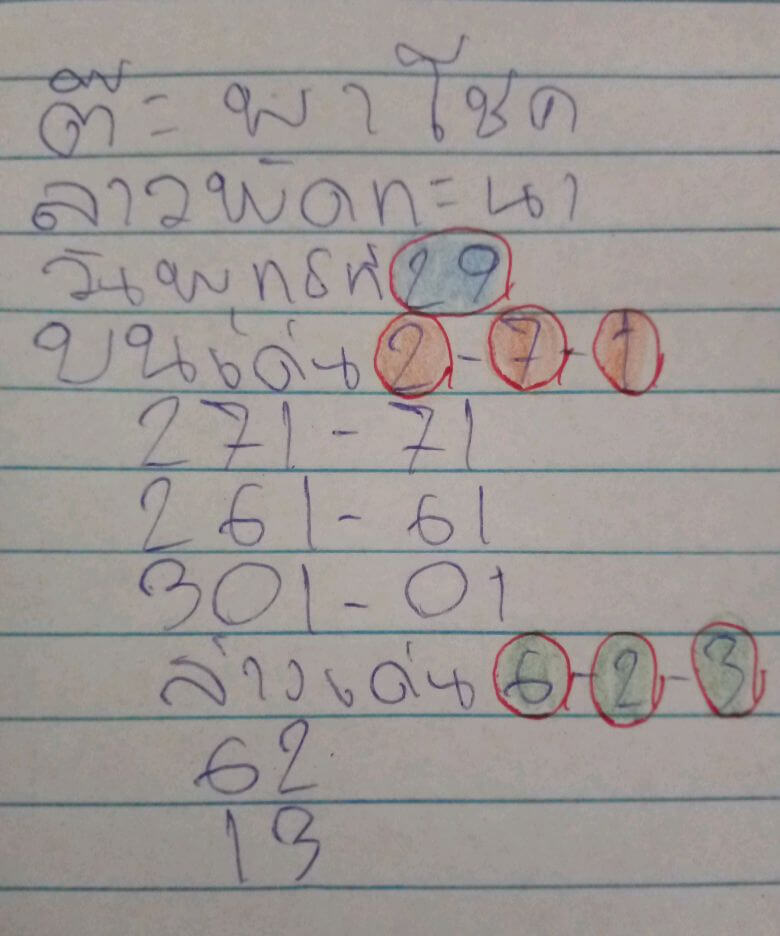 ตี๊ะ พาโชค
ลาวพัดทะนา
วันพุทธที่ 29
บนเด่น 2-7-1
271-71
261-61
301-01
ล่างเด่น 6-2-3
62
13